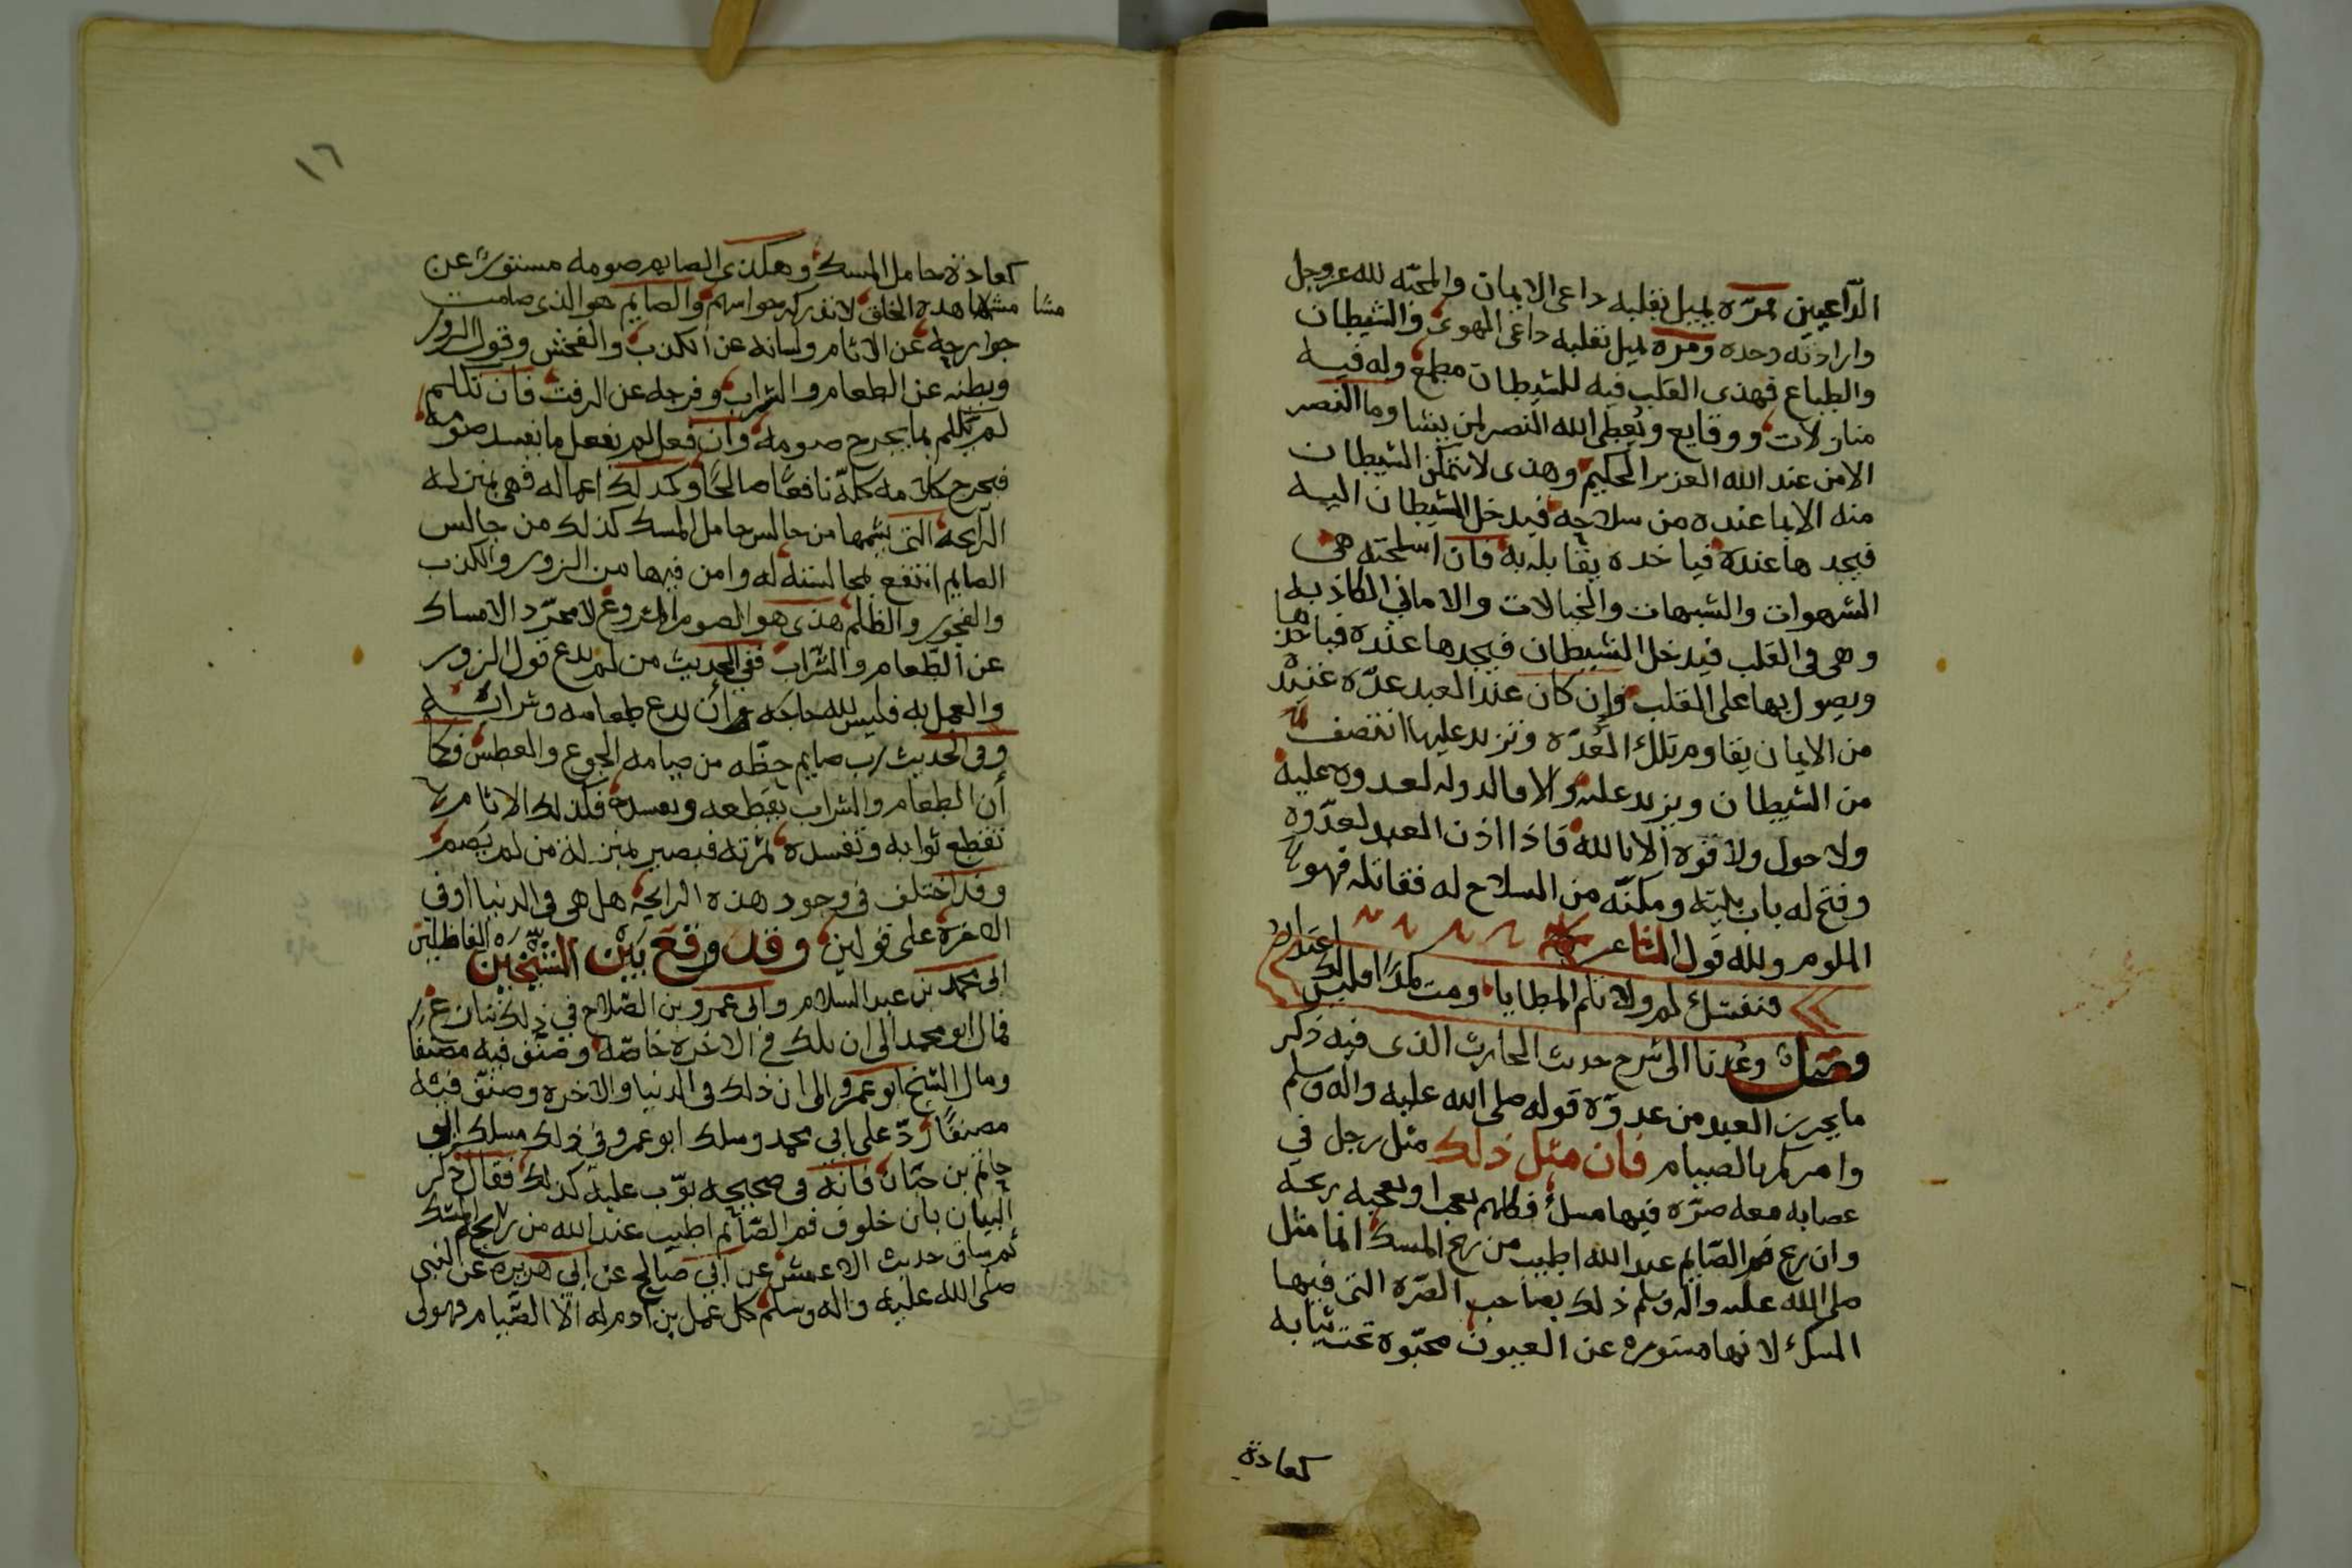 الدّاعيين فمرّه يميل بقلبه داعى الايمان والمحبّه لله عزوجل
وارادته وحده ومره يميل بقلبه داعى الهوى والشيطان
والطباع فهذى القلب فيه للشيطان مطمع وله فيه
منازلات ووقايع ويُعطى الله النصر لمن يشا وما النصر
الا من عند الله العزيز الحكيم وهذى لا يتمكن الشيطان
منه الا بما عنده من سلاحه فيدخل الشيطان اليه
فيجد ها عنده فياخده يقابله به فان اسلحته هى
الشهوات والشبهات والخيالات والامانى الكاذبه
وهى فى القلب فيدخل الشيطان فيجدها عنده فياخذها
ويصول بها على القلب وإن كان عند العبد عدّه عنيده
من الايمان يقاوم تلك العُدّه وتزيد عليها انتصف
من الشيطان ويزيد عليه والا فالدوله لعدوه عليه
ولا حول ولا قوه إلا بالله فاذا اذن العبد لعدّوه
وفتح له باب بيته ومكنّه من السلاح له فقاتله فهو
الملوم ولله قول الشاعر
فنفسك لم ولا تلم المطايا ومت كمدًا فليس لك اعتذار
فصل وعُدنا الى شرح حديث الحارث الذى فيه ذكر
ما يحرز العبد من عدوّه قوله صلى الله عليه واله وسلم
وامركم بالصيام فان مثل ذلك مثل رجل في
عصابه معه صرّه فيها مسك فكلهم يعجب او يعجبه ريحه
وان ريح فم الصّايم عند الله اطيب من ريح المسك انما مثل
صلى الله عليه واله وسلم ذلك بصاحب الصّره التى فيها
المسك لانها مستوره عن العيون مخبّوه تحت ثيابه
كعادة
١٦
كعادة حامل المسك وهكذى الصايم صومه مستور عن
مشاهده الخلق لا تدركه حواسهم والصايم هو الذى صامت
مشا
جوارحه عن الاثام ولسانه عن الكذب والفحش وقول الزور
وبطنه عن الطعام والشراب وفرجه عن الرفث فان تكلم
لم يتكلم بما يجرح صومه وان فعل لم يفعل ما يفسد صومه
فيخرج كلامه كلّه نافعًا صالحًا وكذلك اعماله فهى بمنزله
الرّايحه التى يشمها من جالس حامل المسك كذلك من جالس
الصايم انتفع بمجالسته له وامن فيها من الزور والكذب
والفجور والظلم هذى هو الصوم المشروع لا مجرّد الامساك
عن الطّعام والشّراب ففى الحديث من لم يدع قول الزور
والعمل به فليس لله حاجه فى أن يدع طعامه وشرابه
وفى الحديث رب صايم حظّه من صيامه الجوع والعطش فكما
أن الطعام والشراب يقطعه ويفسده فكذلك الاثام
تقطع ثوابه وتفسده ثمرته فيصير بمنزله من لم يصم
وقد اختلف فى وجود هذه الرايحه هل هى فى الدنيا او فى
الاخره على قولين وقد وقع بين الشّيخين الفاظلين
ابى محمد بن عبد السلام وابى عمرو بن الصّلاح في ذلك تنازع
فمال ابو محمد الى ان تلك فى الاخره خاصّه وصنّف فيه مصنفًا
ومال الشيخ ابو عمرو الى ان ذلك فى الدنيا والاخره وصنّف فيه
مصنفًا ردّ على ابي محمد وسلك ابو عمرو فى ذلك مسلك ابو
حاتم بن حبّان فانّه فى صحيحه بوّب عليه كذلك فقال ذكر
البيان بان خلوف فم الصّائم اطيب عند الله من ريح المسك
ثم ساق حديث الاعمش عن ابي صالح عن ابي هريره عن النبى
صلى الله عليه واله وسلم كل عمل بن ادم له الّا الصّيام فهو لى